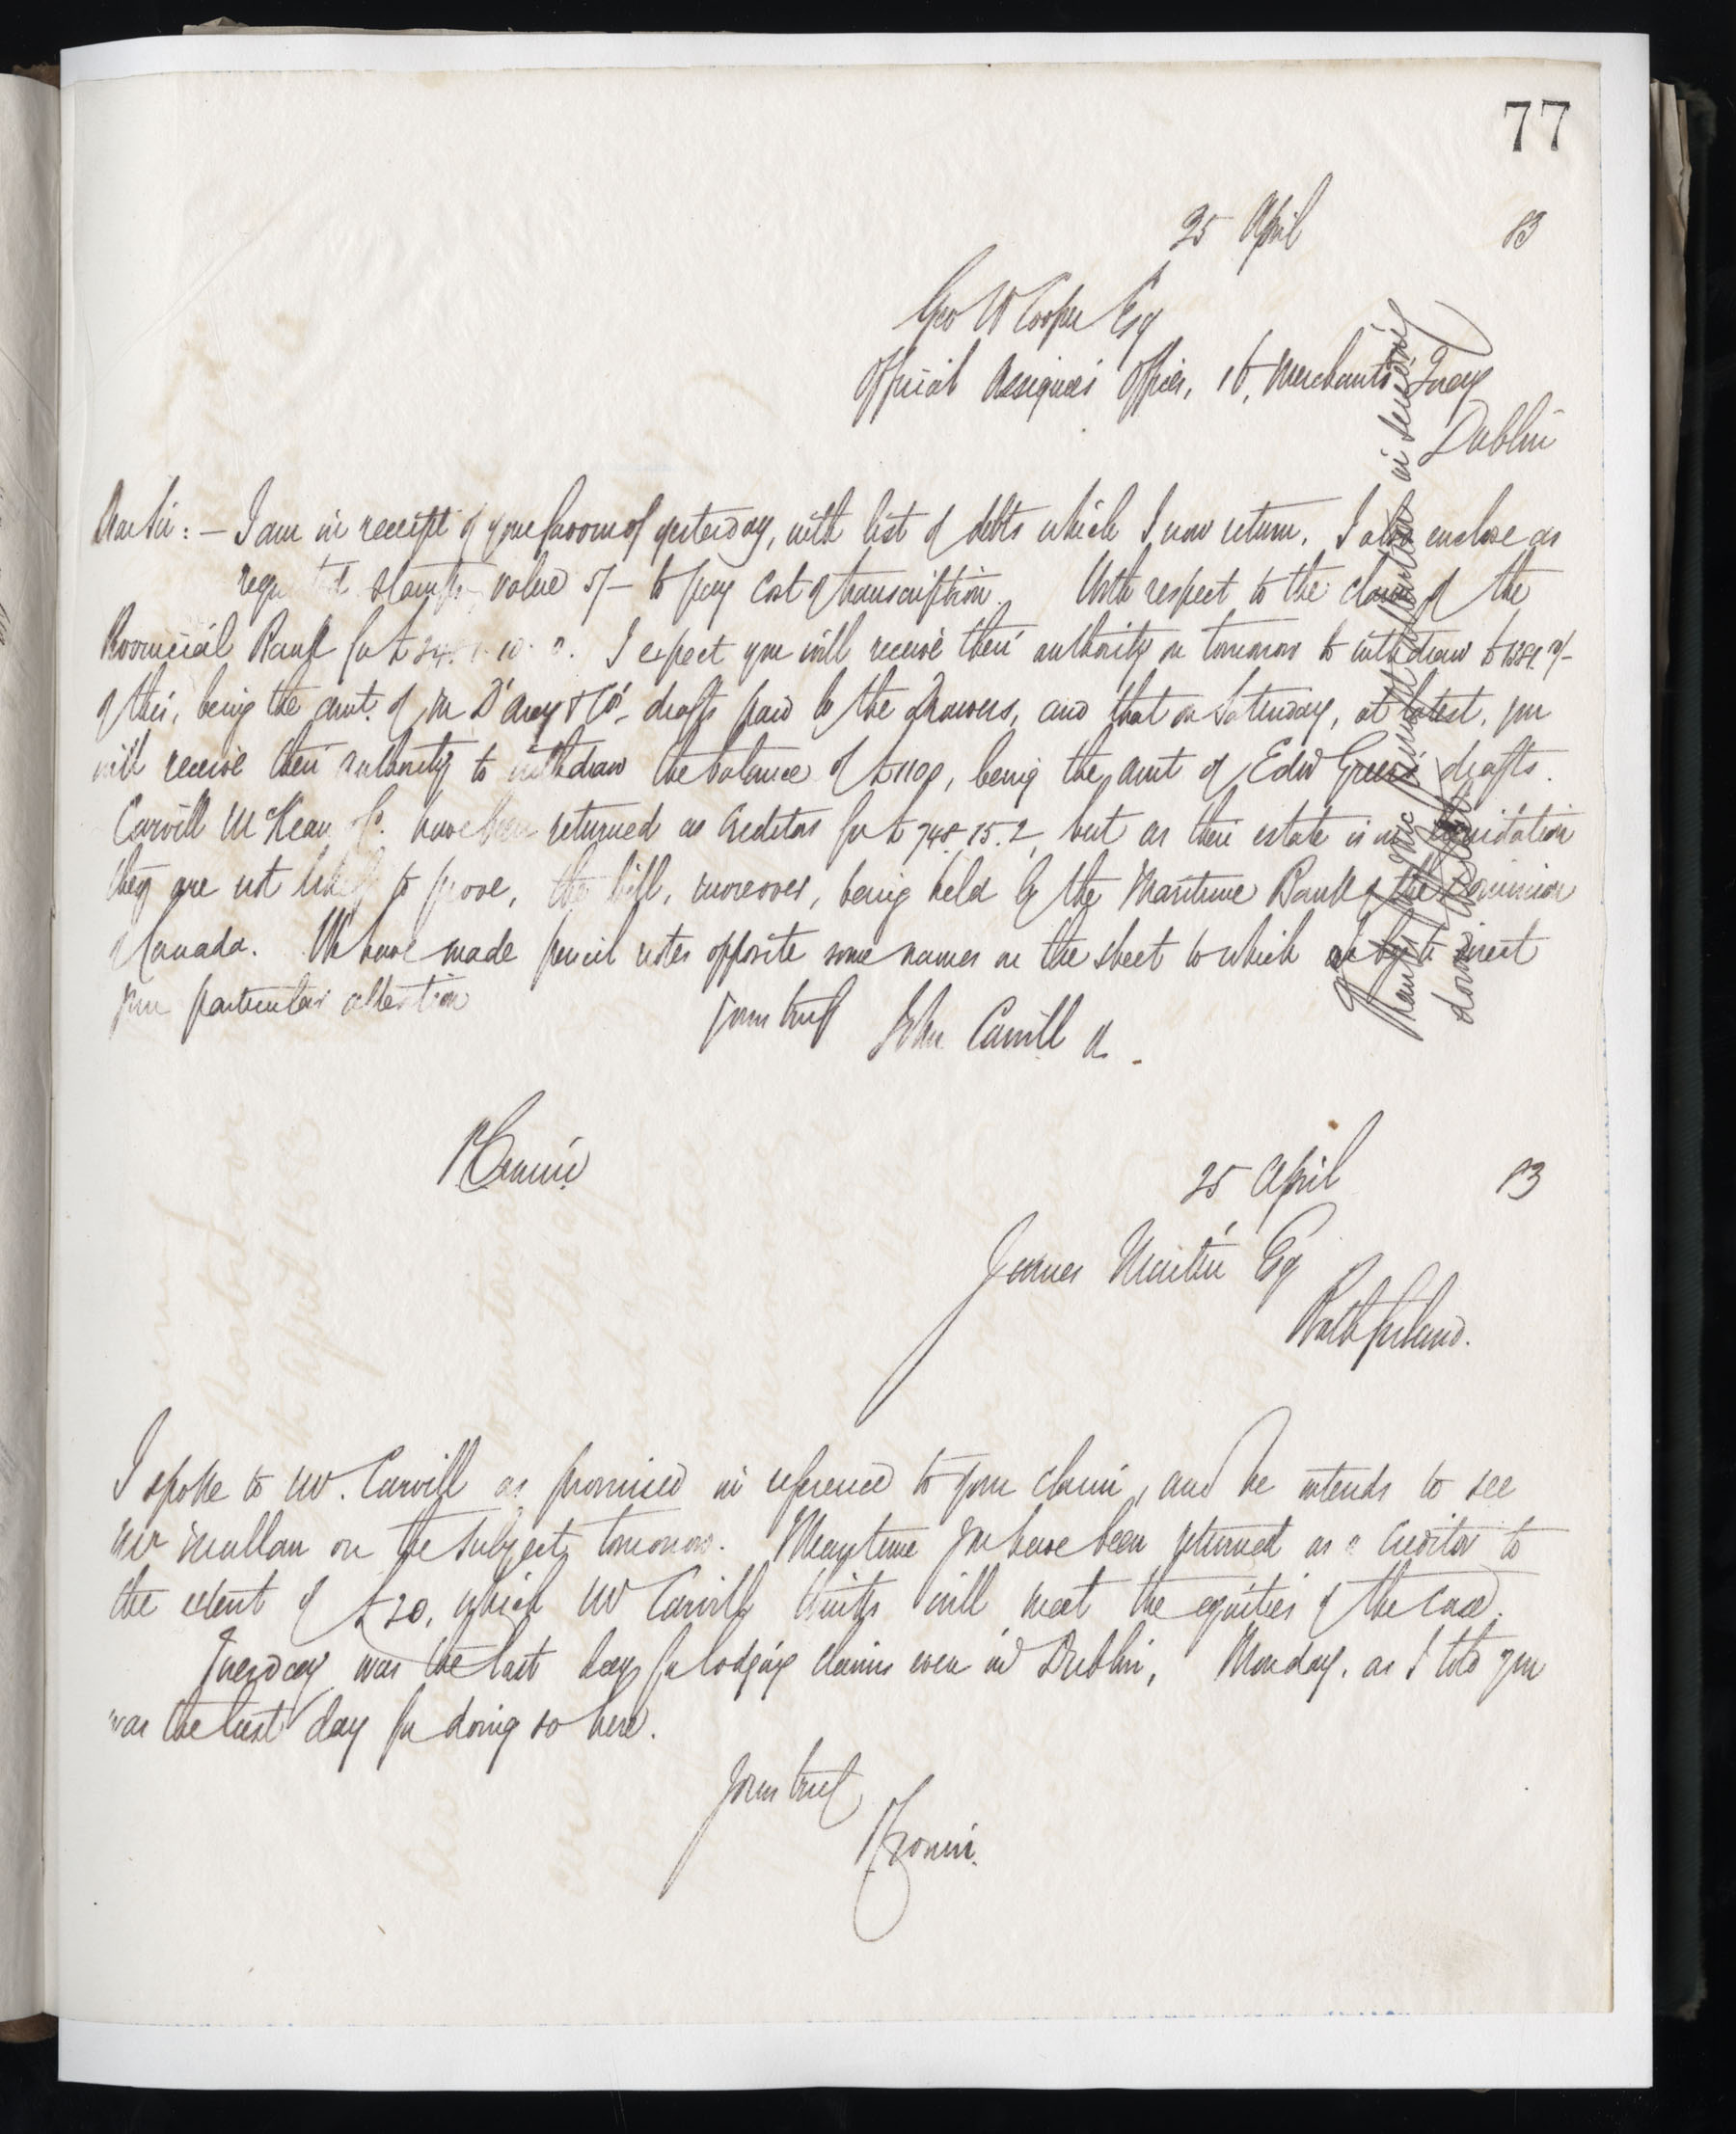 77
25 April 83
Geo W Cooper Esq
Official Assignees Offices, 16, Merchants Quay
Dublin
Dear Sir : — I am in receipt of your favour of yesterday, with list of debts which I now return. I also enclose as
stamps value 5/- to pay cost of transcription. With respect to the claim of the
Provincial Bank for £ I expect you will receive their authority on tomorrow to withdraw
of this, being the amt. of D'Arcy & Co's drafts paid by the Drawers, and that on Saturday, at latest, you
will receive their authority to withdraw the balance of £1100, being the amt of Edw Green's drafts.
Carvill McKean have been returned as Creditors for £748.15.2, but as their estate is in liquidation
they are not likely to prove, the bill, moreover, being held by the Maritime Bank of the Dominion
of Canada. We have made pencil notes opposite some names on the sheet to which we beg to direct
your particular attention
Yours truly John Carvill
Thank
down
in
P Cronin
25 April 83
James Martin Esq
Rathfriland.
I spoke to Mr. Carvill as promised in reference to your claim, and he intends to see
Mr Mullan on the subject tomorrow. Meantime you have been returned as a Creditor to
the extent of £20, which Mr Carvill thinks will meet the equities of the case.
Tuesday was the last day for lodging claims even in Dublin, Monday, as I told you
was the last day for doing so here.
Yours truly
P Cronin.